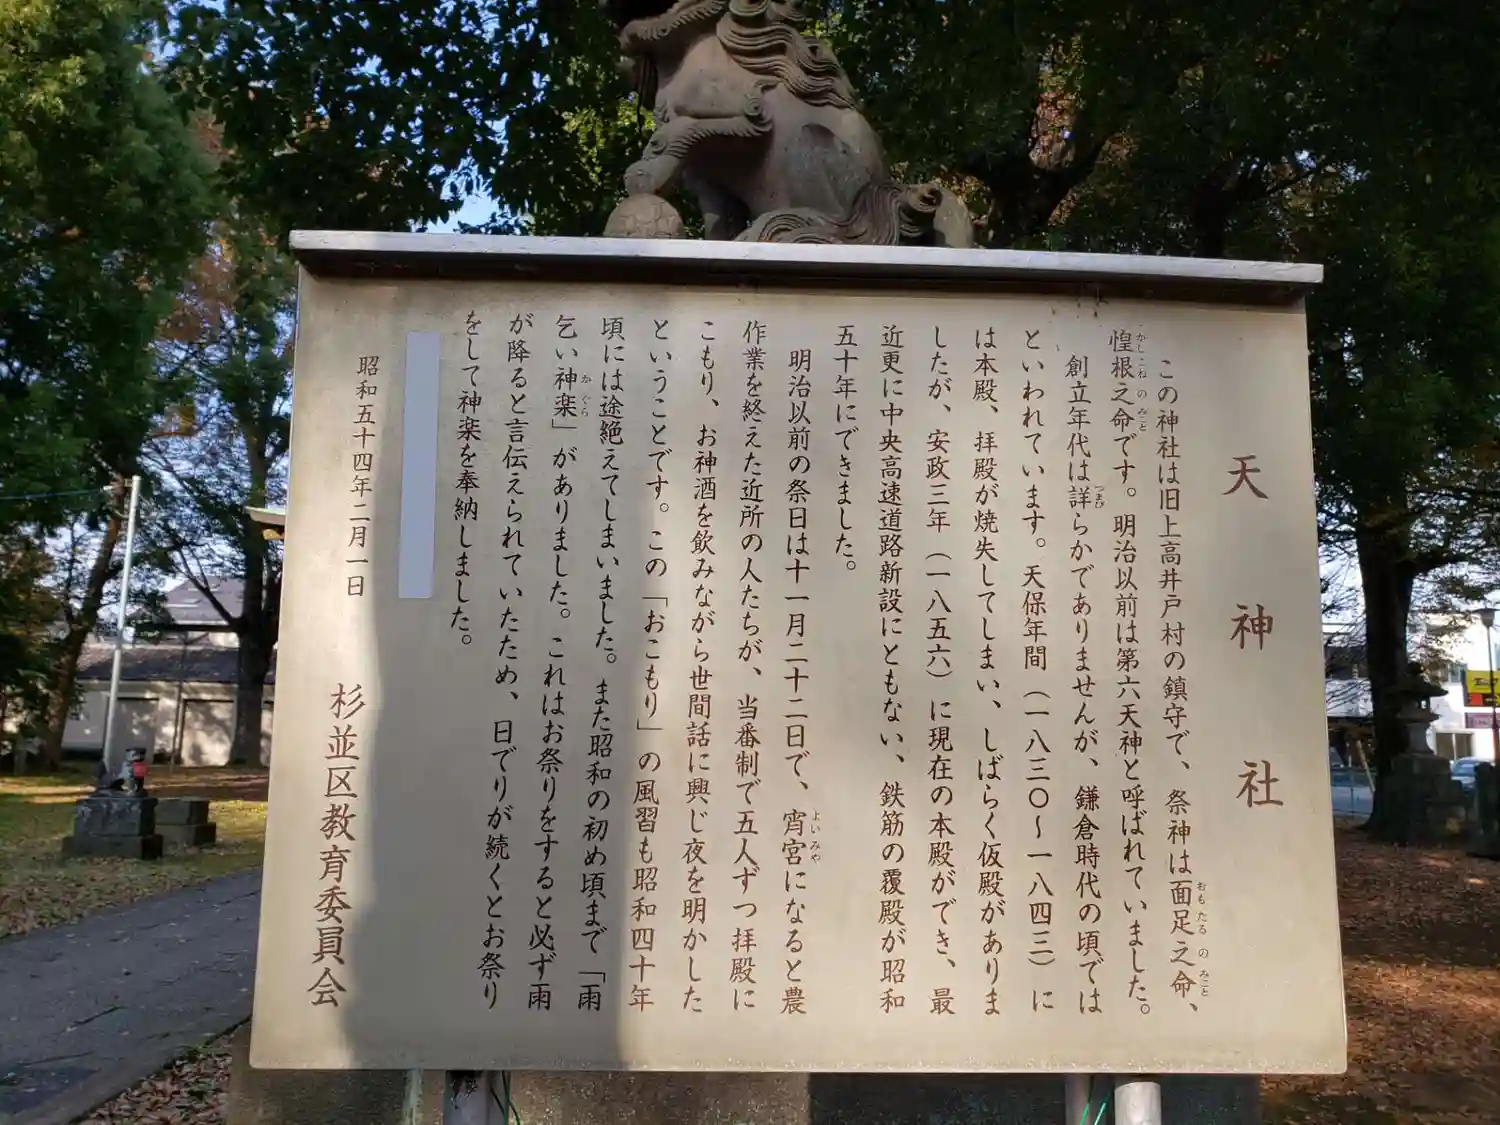 天神社
この神社は旧上高井戸村の鎮守で、祭神は面足之命、
惶根之命です。明治以前は第六天神と呼ばれていました。
創立年代は詳らかでありませんが、鎌倉時代の頃では
といわれています。天保年間（一八三〇～一八四三）に
は本殿、拝殿が焼失してしまい、しばらく仮殿がありま
したが、安政三年（一八五六）に現在の本殿ができ、最
近更に中央高速道路新設にともない、鉄筋の覆殿が昭和
五十年にできました。
明治以前の祭日は十一月二十二日で、宵宮になると農
作業を終えた近所の人たちが、当番制で五人ずつ拝殿に
こもり、お神酒を飲みながら世間話に興じ夜を明かした
ということです。この「おこもり」の風習も昭和四十年
頃には途絶えてしまいました。また昭和の初め頃まで「雨
乞い神楽」がありました。これはお祭りをすると必ず雨
が降ると言伝えられていたため、日でりが続くとお祭り
をして神楽を奉納しました。
昭和五十四年二月一日
杉並区教育委員会